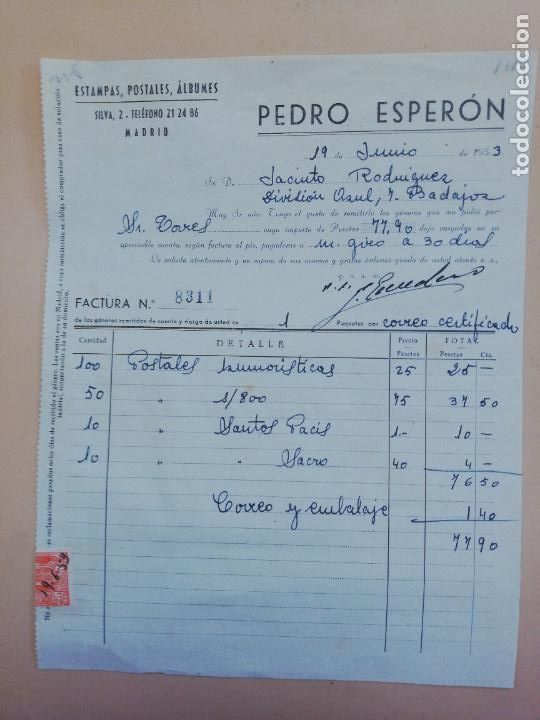 ESTAMPAS, POSTALES, ÁLBUMES
SILVA, 2 - TELÉFONO 21 24 86
MADRID
PEDRO ESPERÓN
19 de Junio de 1953
Sr. D. Jacinto Rodriguez
División Azul, 7. Badajoz
Muy Sr. mío: Tengo el gusto de remitirle los géneros que me pidió por
Sr. Torres cuyo importe de Pesetas 77,90 dejo cargadas en su
apreciable cuenta, según factura al pie, pagaderas a m. giro a 30 dias
Le saluda atentamente y en espera de sus nuevas y gratas órdenes queda de usted atento s. s.,
q. e. s. m.
p. p.
FACTURA N.º 8311
de los géneros remitidos de cuenta y riesgo de usted en 1 Paquetes por correo certificado
Cantidad DETALLE Precio Pesetas TOTAL Pesetas Cts.
100 Postales humorísticas 25 25 —
50 " s/800 75 37 50
10 " Santos Pacis 1.- 10 —
10 " " Sacro 40 4 —
76 50
Correo y embalaje 1 40
77 90
19-6-53
todocoleccion